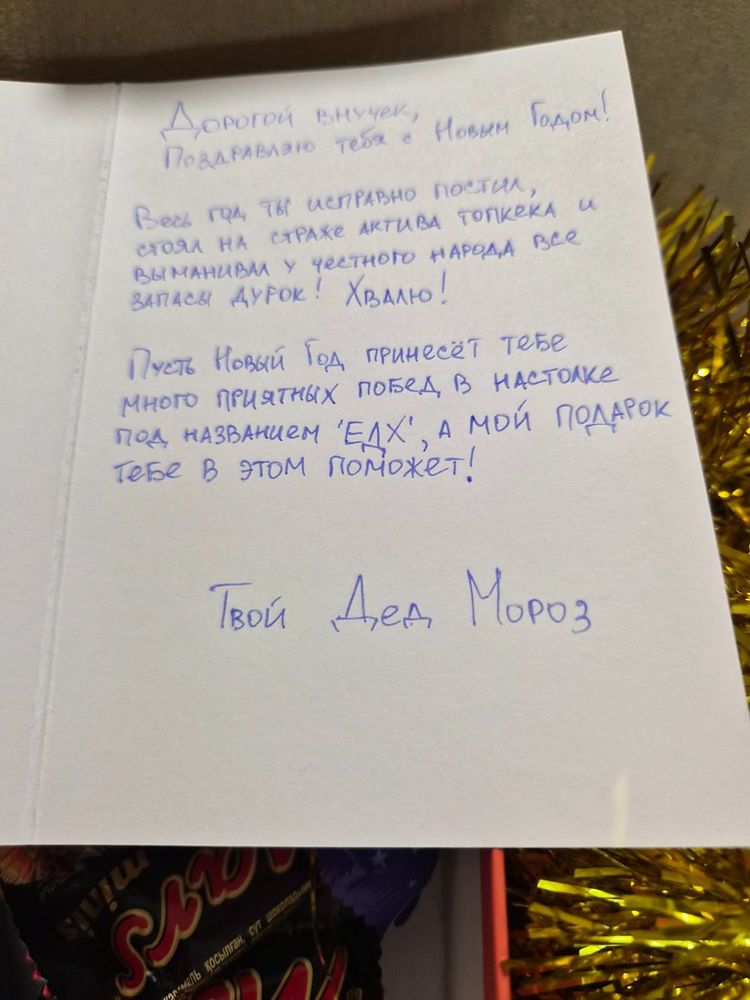 Дорогой внучек,
Поздравляю тебя с Новым Годом!
Весь год ты исправно постил,
стоял на страже актива топкека и
выманивал у честного народа все
запасы дурок! Хвалю!
Пусть Новый Год принесёт тебе
много приятных побед в настолке
под названием 'ЕДХ', а мой подарок
тебе в этом поможет!
Твой Дед Мороз
minis
Mars
карамель қосылған, сүт шоколадынан